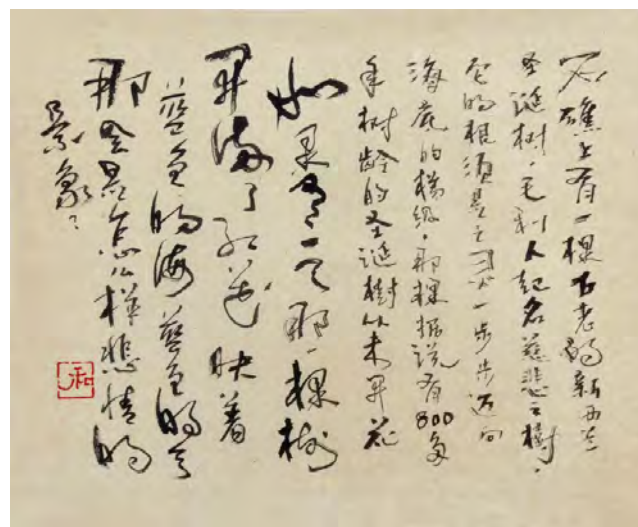 石礁上有一棵古老的新西兰
圣诞树，毛利人起名慈悲之樹，
它的根须是 一步步迈向
海底的梯级，那棵据说有800多
年树龄的圣诞樹从未开花
如果有一天那一棵树
开满了红花映着
藍色的海藍色的天
那会是怎么样悲情的
景象
和